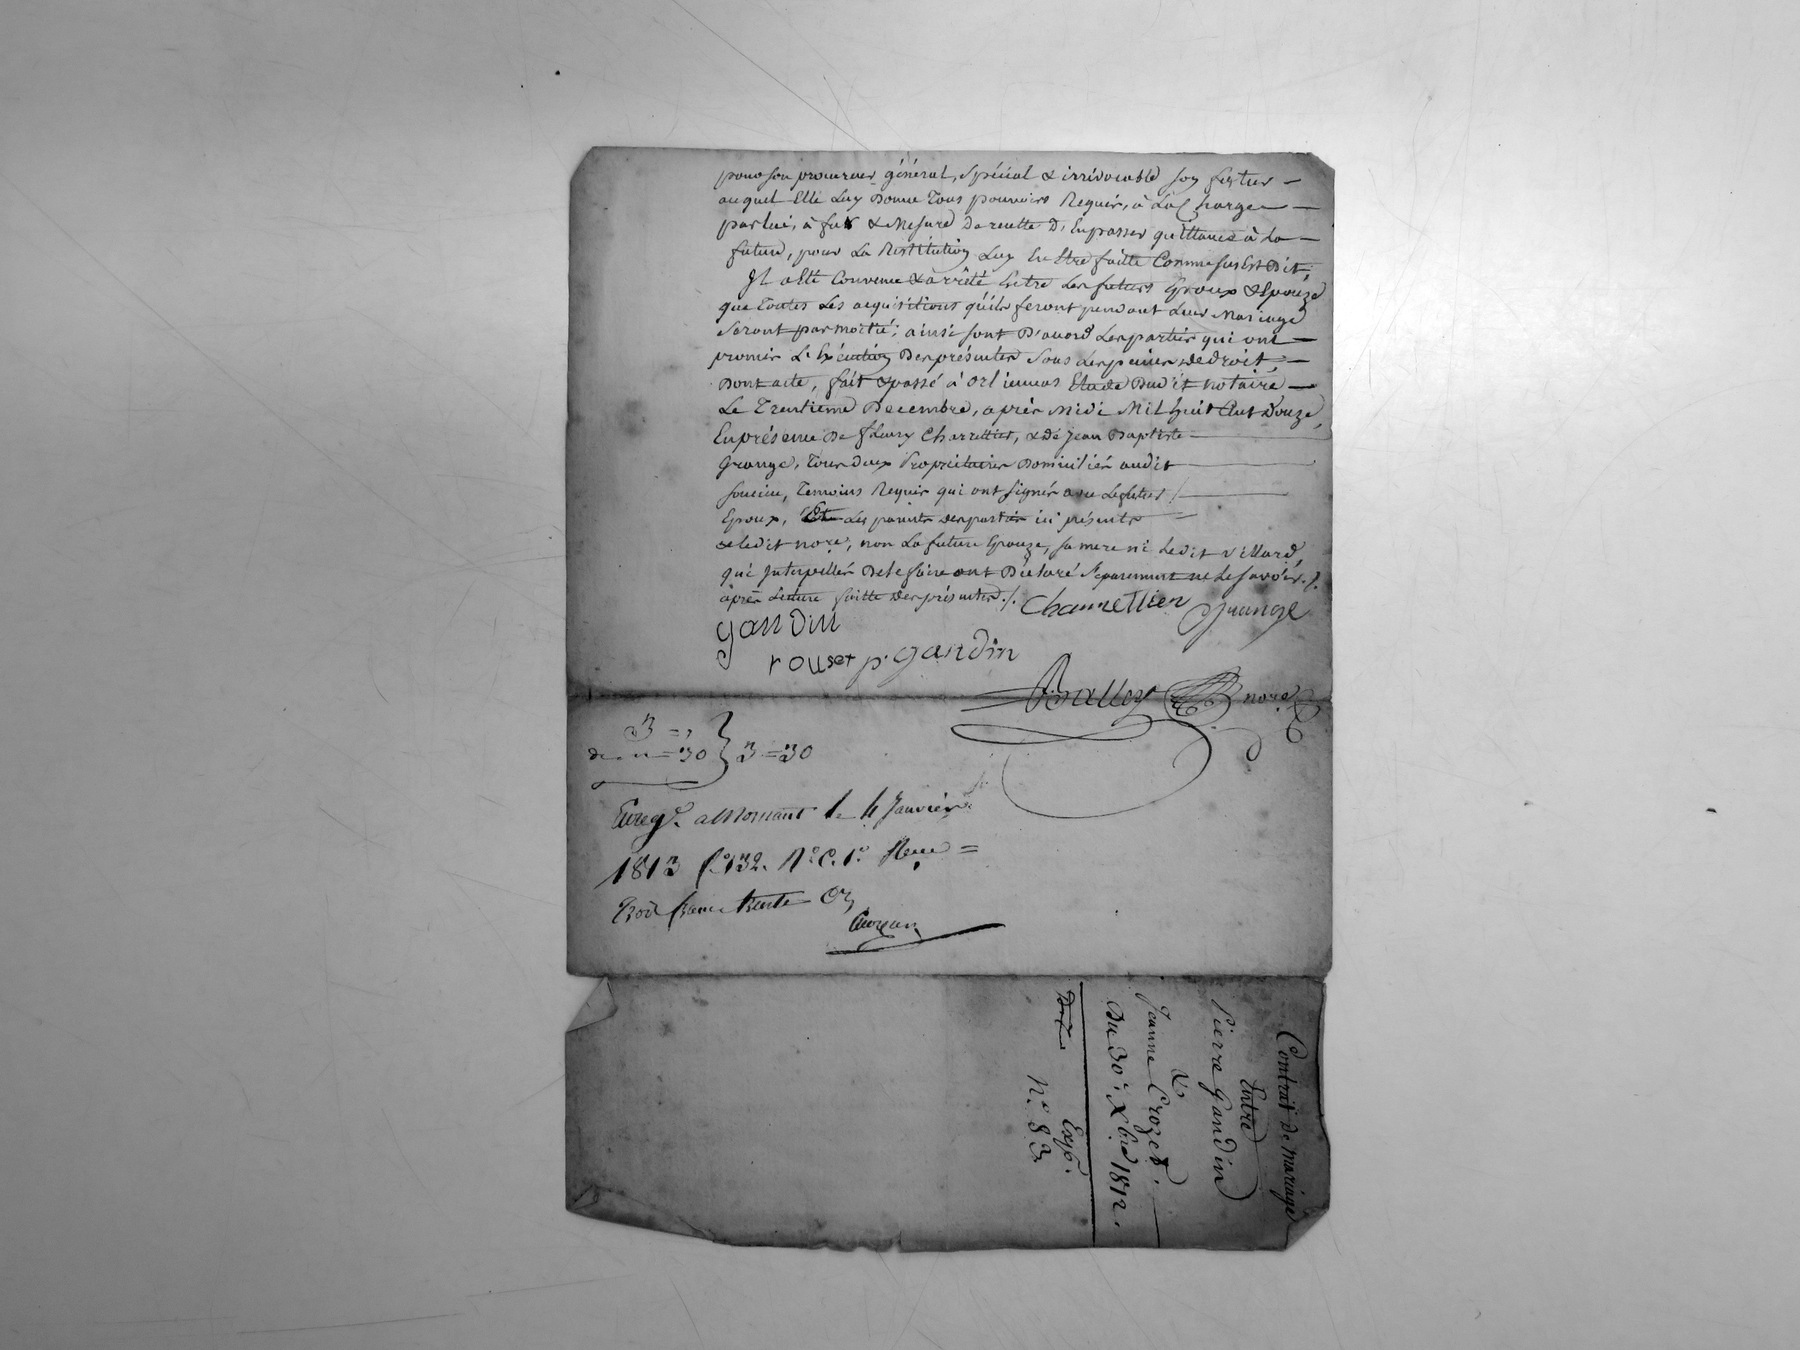 pour son procureur général, spécial & irrévocable son futur —
auquel Elle Luy Donne Tous pouvoirs Requis, à La Charge —
par lui, à fur & Mesure De recette D'En passer quittance à la —
future, pour La Restitution Luy En Etre faitte Comme sus Est Dit;
Il a Eté Convenu & arrêté Entre Les futurs Epoux & Epouze
que Toutes Les acquisitions qu'ils feront pendant Leur Mariage
Seront par moitié; ainsi sont D'acord Les parties qui ont —
promis L'Exécution Des présentes Sous Les peines de Droit, —
Dont acte, fait & passé à Orliennas Etude Dud it notaire —
Le Trentieme Decembre, après Midi Mil huit Cent Douze,
En présence De fleury Charrettier, & de Jean Baptiste —
Grange, Tous Deux Propriétaires Domiciliés audit —
Soucieu, Temoins Requis qui ont signés avec Le futur
Epoux, Les parents Des parties ici présents —
& ledit nore, non La future Epouze, sa mere ni Ledit villard
qui Interpellés De le faire ont Déclaré Séparément ne le savoir ./.
après Lecture faitte Des présentes ./. Charrettier Grange
gandin
rouset p. gandin
Balley nore
3 = ,
de .. = 30 } 3 = 30
Enregé. a Mornant le 4 Janvier
1813 fo. 132. Ro C. 1e. Reçu =
Trois francs trente Cn
Contrat de mariage
Entre
Pierre Gandin
&
Jeanne Crozet. —
Du 30e. Xbre 1812.
Exp.
No. 83